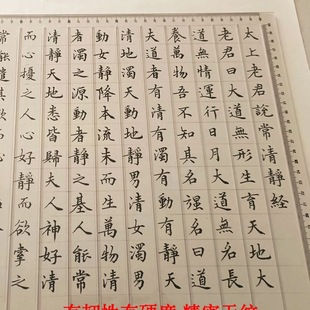 太上老君說常清靜經
老君曰大道無形生育天地大
道無情運行日月大道無名長
養萬物吾不知其名強名曰道
夫道者有清有濁有動有靜天
清地濁天動地靜男清女濁男
動女靜降本流末而生萬物清
者濁之源動者靜之基人能常
清靜天地悉皆歸夫人神好清
而心擾之人心好靜而欲牽之
常能遣其欲而
有韧性有硬度